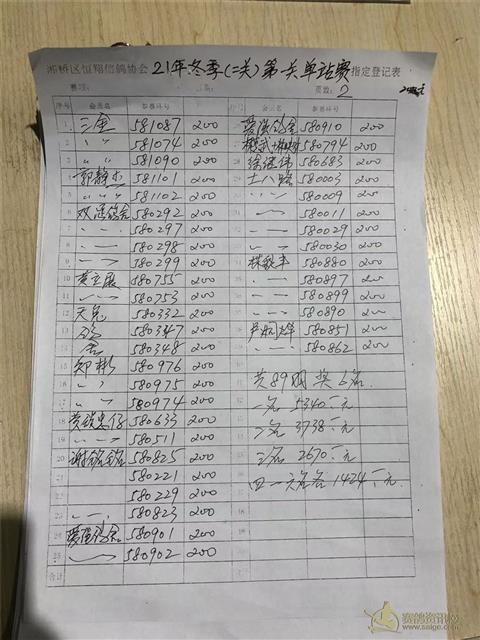 湘桥区恒翔信鸽协会 21年冬季(二关)第一关单站赛 指定登记表
页数: 2
序号 会员名 参赛环号 序号 会员名 参赛环号
1 三金 581087 200
2 〃 581074 200
3 〃 581090 200
4 郭静杰 581101 200
5 〃 581102 200
6 580292 200
7 〃 580297 200
8 〃 580298 200
9 〃 580299 200
10 580755 200
11 〃 580753 200
12 天兔 580332 200
13 580347 200
14 580348 200
15 郑彬 580976 200
16 〃 580975 200
17 〃 580974 200
18 580633 200
19 〃 580511 200
20 580825 200
21 580221 200
22 580229 200
23 〃 580823 200
24 580901 200
25 580902 200
合计
580910 200
580794 200
徐继伟 580683 200
十八路 580003 200
〃 580009 200
〃 580011 200
〃 580029 200
〃 580030 200
580880 200
〃 580897 200
〃 580899 200
〃 580890 200
580851 200
〃 580862 200
共89羽奖6名
一名 5340元
二名 3738元
三名 2670元
四—六名各1424元
赛鸽资讯网
www.saige.com